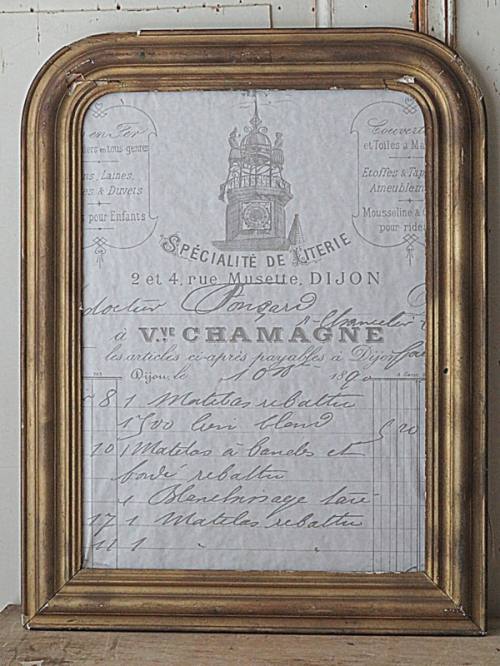 en Fer
iers en tous genres
ns, Laines,
es & Duvets
pour Enfants
Couvert
et Toiles à Ma
Etoffes & Tap
Ameublem
Mousseline &
pour ride
SPÉCIALITÉ DE LITERIE
2 et 4, rue Musette, DIJON
docteur Ponsard
à V.VE CHAMAGNE
les articles ci-après payables à Dijon
Dijon, le 10 189
8 1 Matelas rebattu
1500 lien blond
10 1 Matelas à bandes et
rebattu
1 Blanchissage
17 1 Matelas rebattu
11 1 "